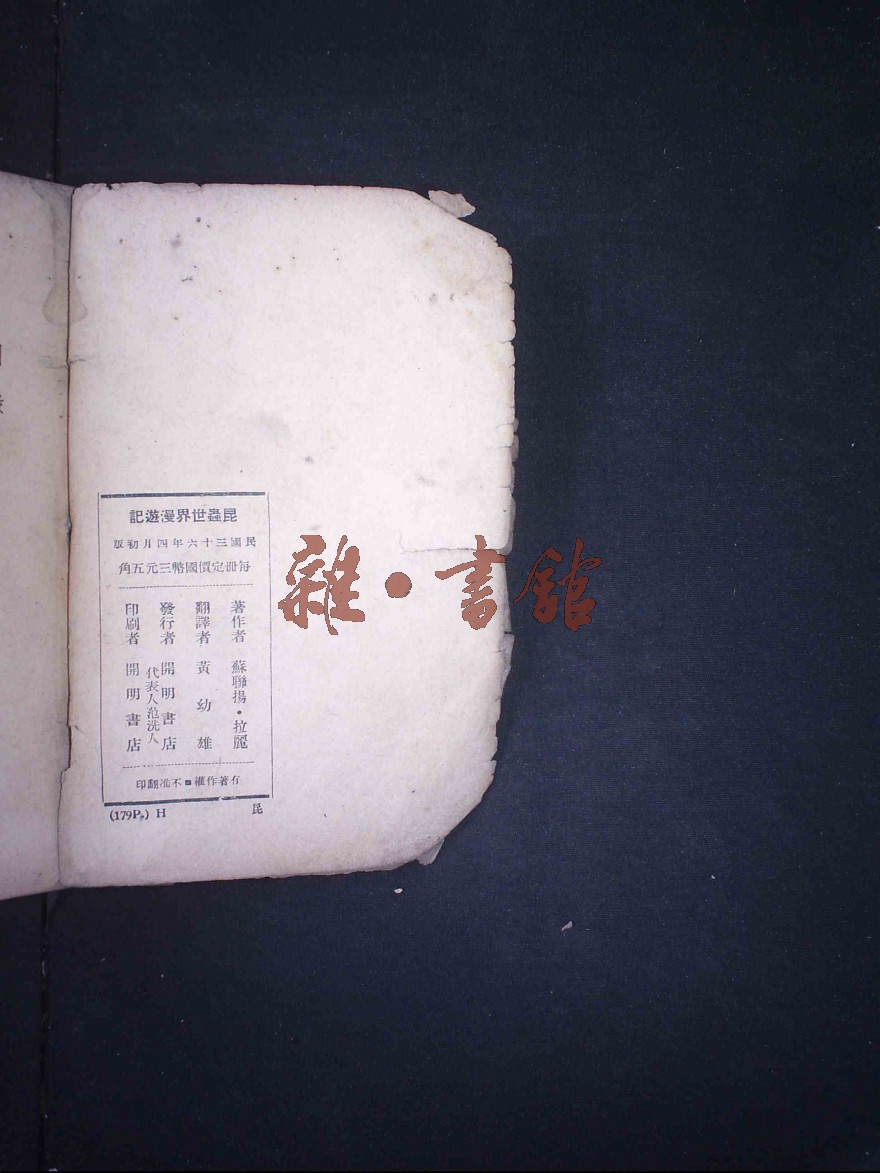 昆蟲世界漫遊記
民國三十六年四月初版
每冊定價國幣三元五角
著作者 蘇聯揚·拉麗
翻譯者 黃幼雄
發行者 開明書店
代表人范洗人
印刷者 開明書店
有著作權■不准翻印
(179P.) H
昆
雜·書館